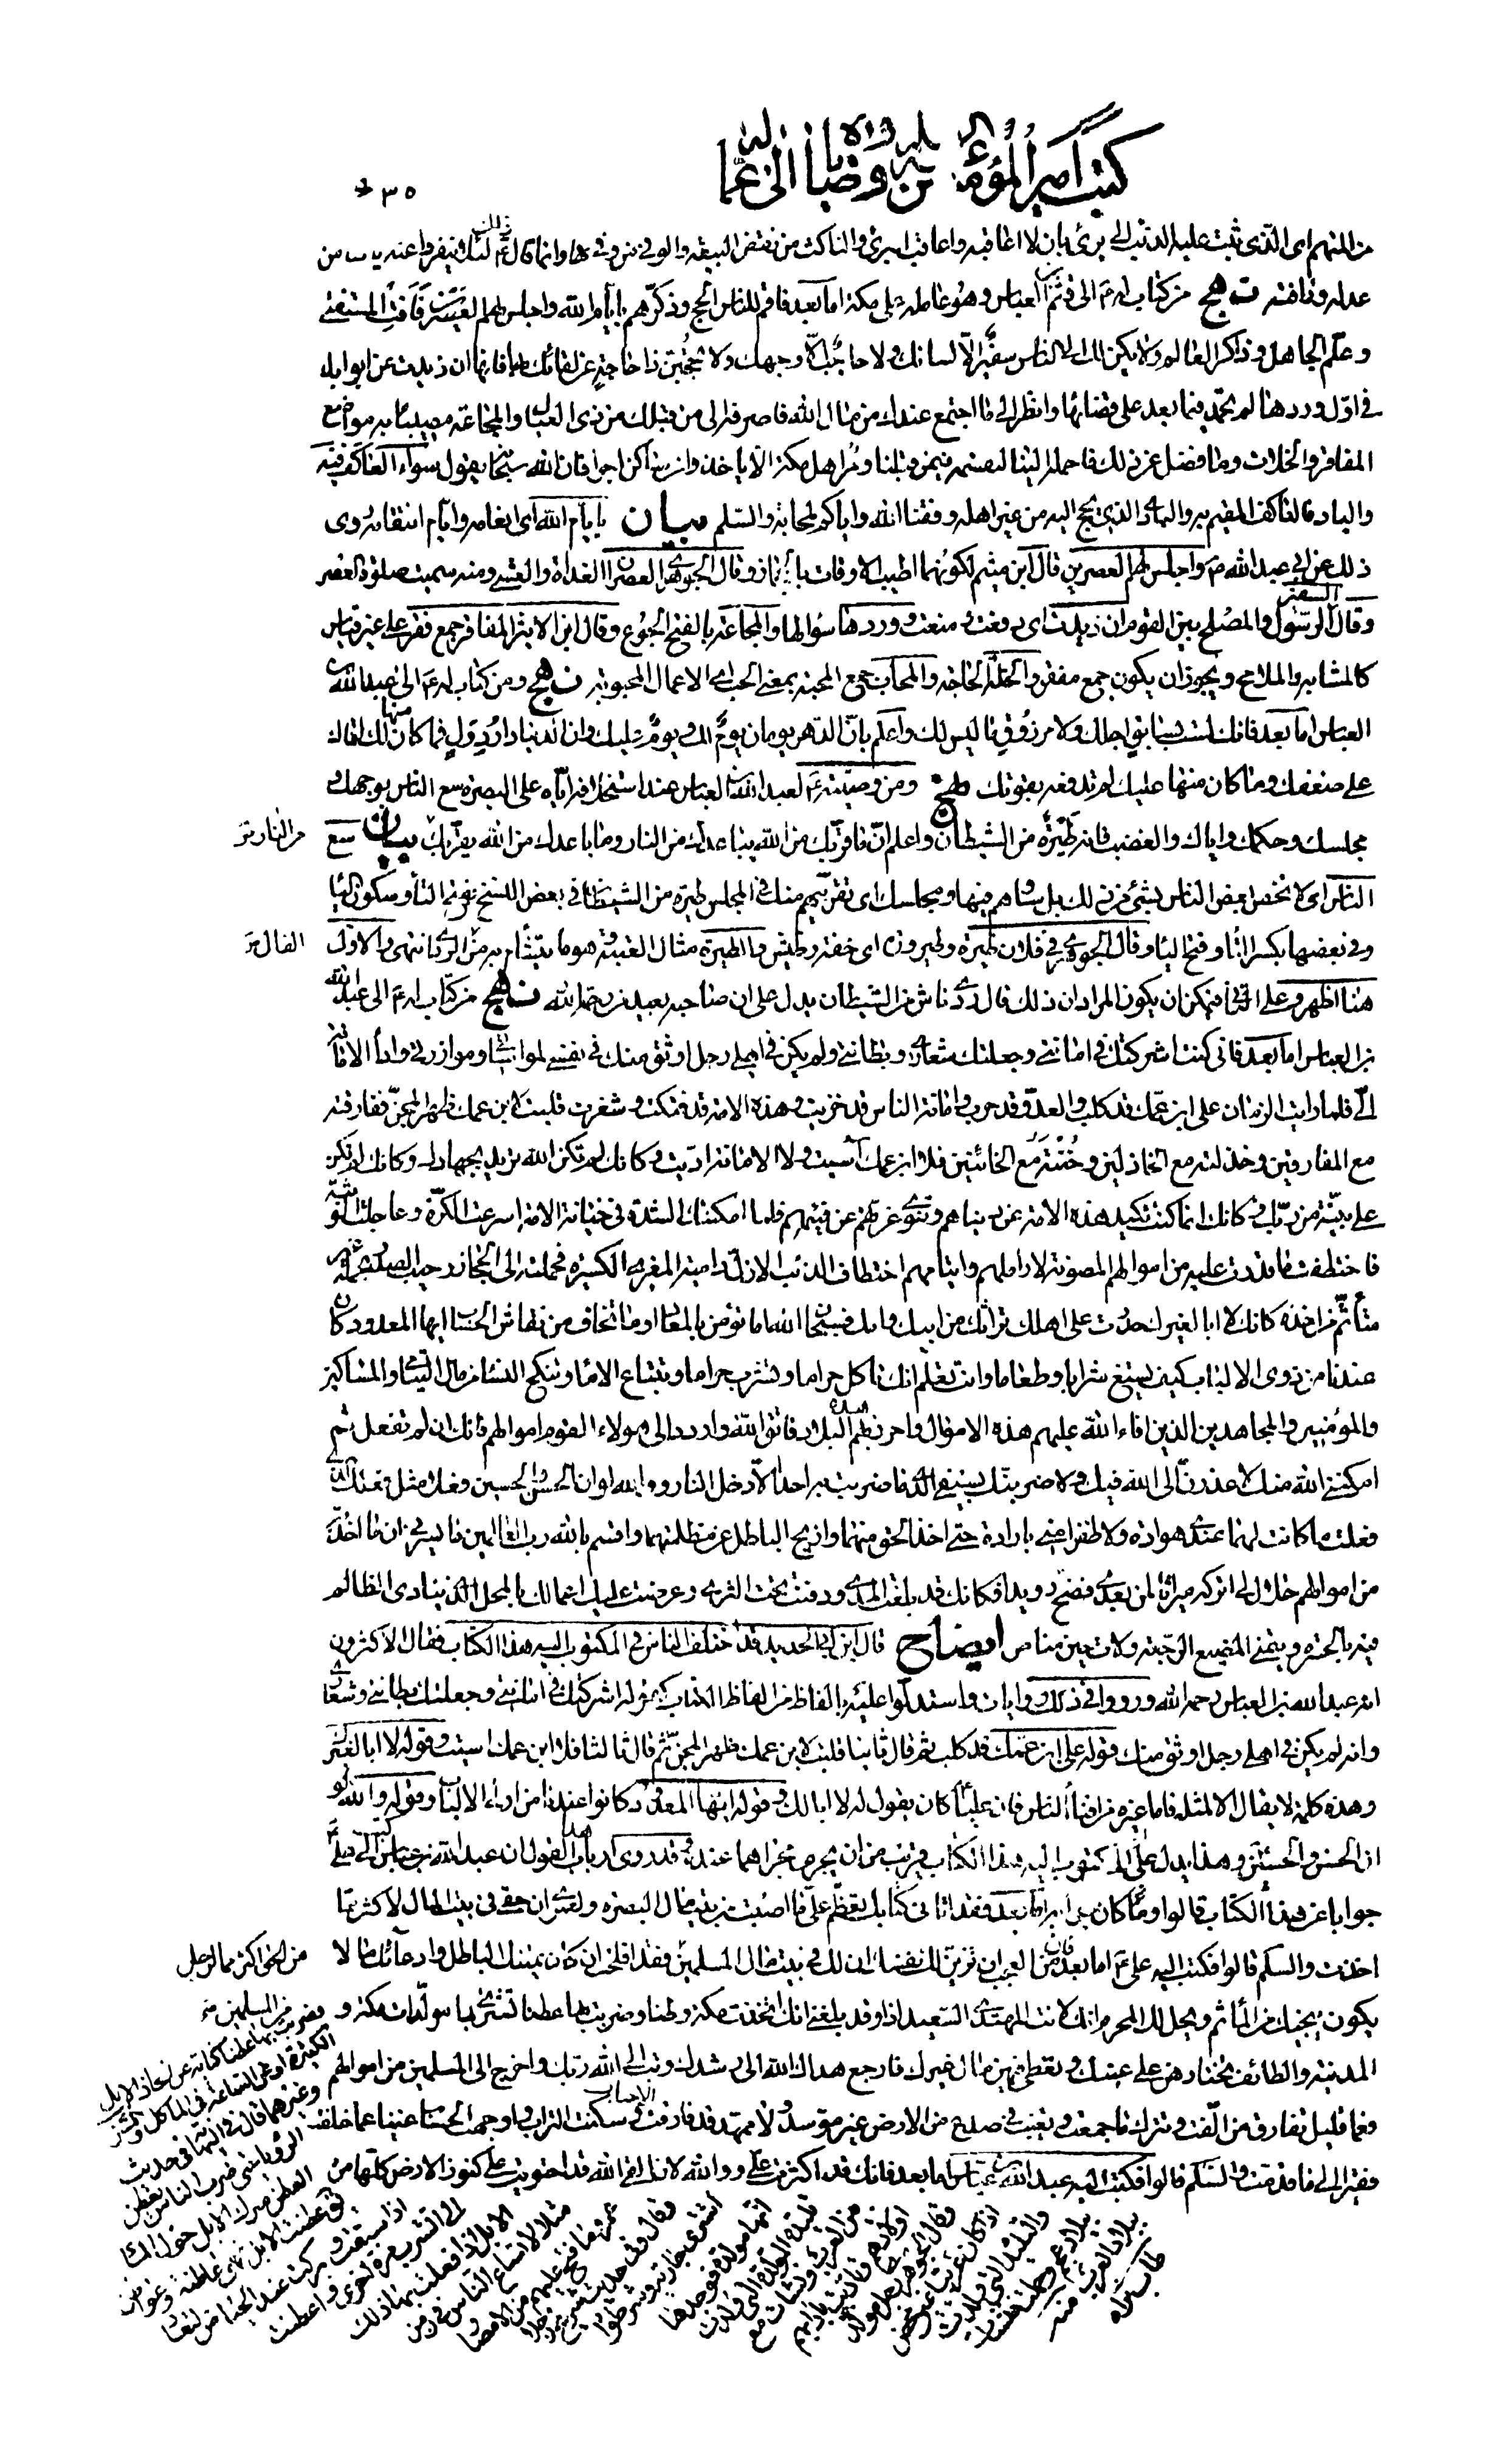 كتب امير المؤمنين صلوات الله عليه ووصاياه الى عماله
من المتهم اى الذى ثبت عليه الذنب الى برئ بان لا اعاقبه واعاقب البرئ والناكث من نقض البيعة والوفى من وفى بها وانما قال ذلك لئلا ينفروا عنه يأسا من
عدله ورأفته نهج من كتاب له ع الى قثم بن العباس وهو عامله على مكة اما بعد فاقم للناس الحج وذكرهم بايام الله واجلس لهم العصرين فأفت المستفتى
وعلم الجاهل وذاكر العالم ولا يكن لك الى الناس سفير الا لسانك ولا حاجب الا وجهك ولا تحجبن ذا حاجة عن لقائك بها فانها ان ذيدت عن ابوابك
فى اول وردها لم تحمد فيما بعد على قضائها وانظر الى ما اجتمع عندك من مال الله فاصرفه الى من قبلك من ذى العيال والمجاعة مصيبا به مواضع
المفاقر والخلات وما فضل عن ذلك فاحمله الينا لنقسمه فيمن قبلنا ومر اهل مكة الا ياخذوا من ساكن اجرا فان الله سبحانه يقول سواء العاكف فيه
والباد فالعاكف المقيم به والبادى الذى يحج اليه من غير اهله وفقنا الله واياكم لمحابه والسلم بيان بايام الله اى انعامه وايام انتقامه روى
ذلك عن ابى عبد الله ع واجلس لهم العصرين قال ابن ميثم لكونهما اطيب الاوقات بالحجاز وقال الجوهرى العصران الغداة والعشى ومنه سميت صلوة العصر
وقال السفير الرسول والمصلح بين القوم ان ذيدت اى دفعت ومنعت ووردها سؤالها والمجاعة بالفتح الجوع وقال ابن الاثير المفاقر جمع فقر على غير قياس
كالمشابه والملامح ويجوز ان يكون جمع مفقر والخلة الحاجة والمحاب جمع المحبة بمعنى الحب اى الاعمال المحبوبة نهج ومن كتاب له ع الى عبد الله بن
العباس اما بعد فانك لست بسابق اجلك ولا مرزوق ما ليس لك واعلم بان الدهر يومان يوم لك ويوم عليك وان الدنيا دار دول فما كان منها لك اتاك
على ضعفك وما كان منها عليك لم تدفعه بقوتك نهج ومن وصيته ع لعبد الله بن العباس عند استخلافه اياه على البصرة سع الناس بوجهك و
مجلسك وحكمك واياك والغضب فانه طيرة من الشيطان واعلم ان ما قربك من الله يباعدك من النار وما باعدك من الله يقربك بيان سع
من النار
الناس اى لا تخص بعض الناس بشئ من ذلك بل ساوهم فيها ومجلسك اى تقربهم منك فى المجلس طيرة من الشيطان فى بعض النسخ بفتح الطاء وسكون الياء
وفى بعضها بكسر الطاء وفتح الياء وقال الجوهرى فى فلان طيرة وطيرورة اى خفة وطيش والطيرة مثال العنبة هو ما يتشاءم به من الردى انتهى والاول
الفال
هنا اظهر وعلى الثانى فيمكن ان يكون المراد ان ذلك فال ردى ناش من الشيطان يدل على ان صاحبه بعيد من رحمة الله نهج من كتاب له ع الى عبد الله
بن العباس اما بعد فانى كنت اشركتك فى امانتى وجعلتك شعارى وبطانتى ولم يكن فى اهلى رجل اوثق منك فى نفسى لمواساتى وموازرتى واداء الامانة
الى فلما رايت الزمان على ابن عمك قد كلب والعدو قد حرب وامانة الناس قد خزيت وهذه الامة قد فتكت وشغرت قلبت لابن عمك ظهر المجن ففارقته
مع المفارقين وخذلته مع الخاذلين وخنته مع الخائنين فلا ابن عمك آسيت ولا الامانة اديت وكانك لم تكن الله تريد بجهادك وكانك لم تكن
على بينة من ربك وكانك انما كنت تكيد هذه الامة عن دنياهم وتنوى غرتهم عن فيئهم فلما امكنتك الشدة فى خيانة الامة اسرعت الكرة وعاجلت الوثبة
فاختطفت ما قدرت عليه من اموالهم المصونة لاراملهم وايتامهم اختطاف الذئب الازل دامية المعزى الكسيرة فحملته الى الحجاز رحيب الصدر بحمله غير
متأثم من اخذه كانك لا ابا لغيرك حدرت على اهلك تراثك من ابيك وامك فسبحان الله اما تؤمن بالمعاد او ما تخاف من نقاش الحساب ايها المعدود كان
عندنا من ذوى الالباب كيف تسيغ شرابا وطعاما وانت تعلم انك تاكل حراما وتشرب حراما وتبتاع الاماء وتنكح النساء من مال اليتامى والمساكين
والمؤمنين والمجاهدين الذين افاء الله عليهم هذه الاموال واحرز بهم هذه البلاد فاتق الله واردد الى هؤلاء القوم اموالهم فانك ان لم تفعل ثم
امكننى الله منك لاعذرن الى الله فيك ولاضربنك بسيفى الذى ما ضربت به احدا الا دخل النار ووالله لو ان الحسن والحسين فعلا مثل فعلك الذى
فعلت ما كانت لهما عندى هوادة ولا ظفرا منى بارادة حتى اخذ الحق منهما وازيح الباطل عن مظلمتهما واقسم بالله رب العالمين ما يسرنى ان ما اخذته
من اموالهم حلال لى اتركه ميراثا لمن بعدى فضح رويدا فكانك قد بلغت المدى ودفنت تحت الثرى وعرضت عليك اعمالك بالمحل الذى ينادى الظالم
فيه بالحسرة ويتمنى المضيع الرجعة ولات حين مناص ايضاح قال ابن ابى الحديد قد اختلف الناس فى المكتوب اليه هذا الكتاب فقال الاكثرون
انه عبد الله بن العباس رحمه الله ورووا فى ذلك روايات واستدلوا عليه بالفاظ من الفاظ الكتاب كقوله اشركتك فى امانتى وجعلتك بطانتى وشعارى
وانه لم يكن فى اهلى رجل اوثق منك وقوله على ابن عمك قد كلب ثم قال ثانيا قلبت لابن عمك ظهر المجن ثم قال ثالثا فلا ابن عمك اسيت وقوله لا ابا لغيرك
وهذه كلمة لا يقال الا لمثله فاما غيره من افناء الناس فان عليا ع كان يقول له لا ابا لك وقوله ايها المعدود كان عندنا من اولى الالباب وقوله والله لو
ان الحسن والحسين وهذا يدل على ان المكتوب اليه هذا الكتاب قريب من ان يجرى مجراهما عنده وقد روى ارباب هذا القول ان عبد الله بن عباس كتب الى على ع
جوابا عن هذا الكتاب قالوا وكان جوابه اما بعد فقد اتانى كتابك تعظم على ما اصبت من بيت مال البصرة ولعمرى ان حقى فى بيت المال لاكثر مما
اخذت والسلم قالوا فكتب اليه على ع اما بعد فان من العجب ان تزين لك نفسك ان لك فى بيت مال المسلمين فقد افلحت ان كان تمنيك الباطل وادعائك ما لا
من الحق اكثر مما لرجل
يكون ينجيك من المأثم ويحل لك المحرم انك لانت المهتدى السعيد اذا وقد بلغنى انك اتخذت مكة وطنا وضربت بها عطنا تشترى بها مولدات مكة و
من المسلمين
المدينة والطائف تختارهن على عينك وتعطى فيهن مال غيرك فارجع هداك الله الى رشدك وتب الى الله ربك واخرج الى المسلمين من اموالهم
فعما قليل تفارق من الفت وتترك ما جمعت وتغيب فى صدع من الارض غير موسد ولا ممهد قد فارقت الاحباب وسكنت التراب وواجهت الحساب غنيا عما خلفت
فقيرا الى ما قدمت والسلم قالوا فكتب اليه عبد الله بن عباس اما بعد فانك قد اكثرت على ووالله لان القى الله قد احتويت على كنوز الارض كلها من